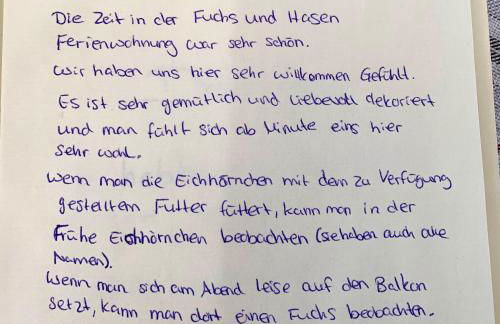 Die Zeit in der Fuchs und Hasen
Ferienwohnung war sehr schön.
Wir haben uns hier sehr willkommen Gefühlt.
Es ist sehr gemütlich und liebevoll dekoriert
und man fühlt sich ab Minute eins hier
sehr wohl.
Wenn man die Eichhörnchen mit dem zu Verfügung
gestelltem Futter füttert, kann man in der
Frühe Eichhörnchen beobachten (sie haben auch alle
Namen).
Wenn man sich am Abend leise auf den Balkon
setzt, kann man dort einen Fuchs beobachten.